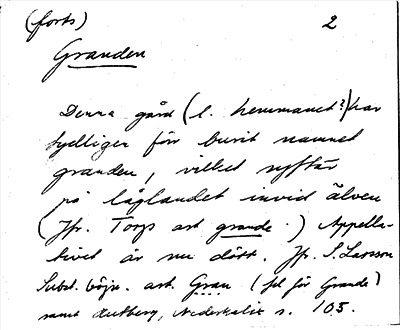 (forts) 2
Granden
Denna gård (l. hemmanet?) har
tydligen förr burit namnet
granden, vilket syftar
på låglandet invid älven
(Jfr. Torps art grande.) Appella-
tivet är nu dött. Jfr. S. Larsson
Subst. böjn. art. Gran (fel för Grande)
samt Hultberg, Nederkalix s. 103.